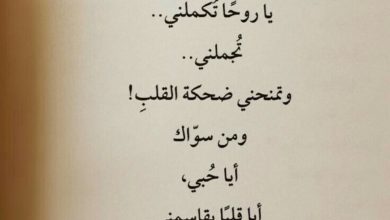 يا روحًا تُكملني..
تُجملني..
وتمنحني ضحكة القلبِ!
ومن سوّاك
أيا حُبي،
أيا قلبًا يقاسمني